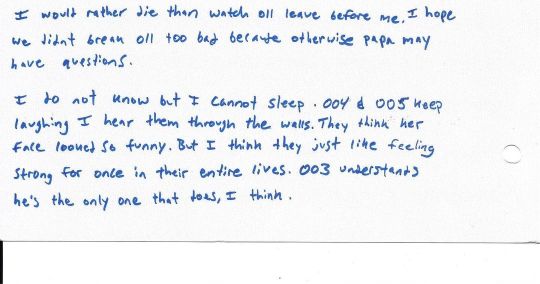 I would rather die than watch 011 leave before me. I hope
we didnt break 011 too bad because otherwise papa may
have questions.
I do not know but I cannot sleep. 004 & 005 keep
laughing I hear them through the walls. They think her
face looked so funny. But I think they just like feeling
strong for once in their entire lives. 003 understands
he's the only one that does, I think.